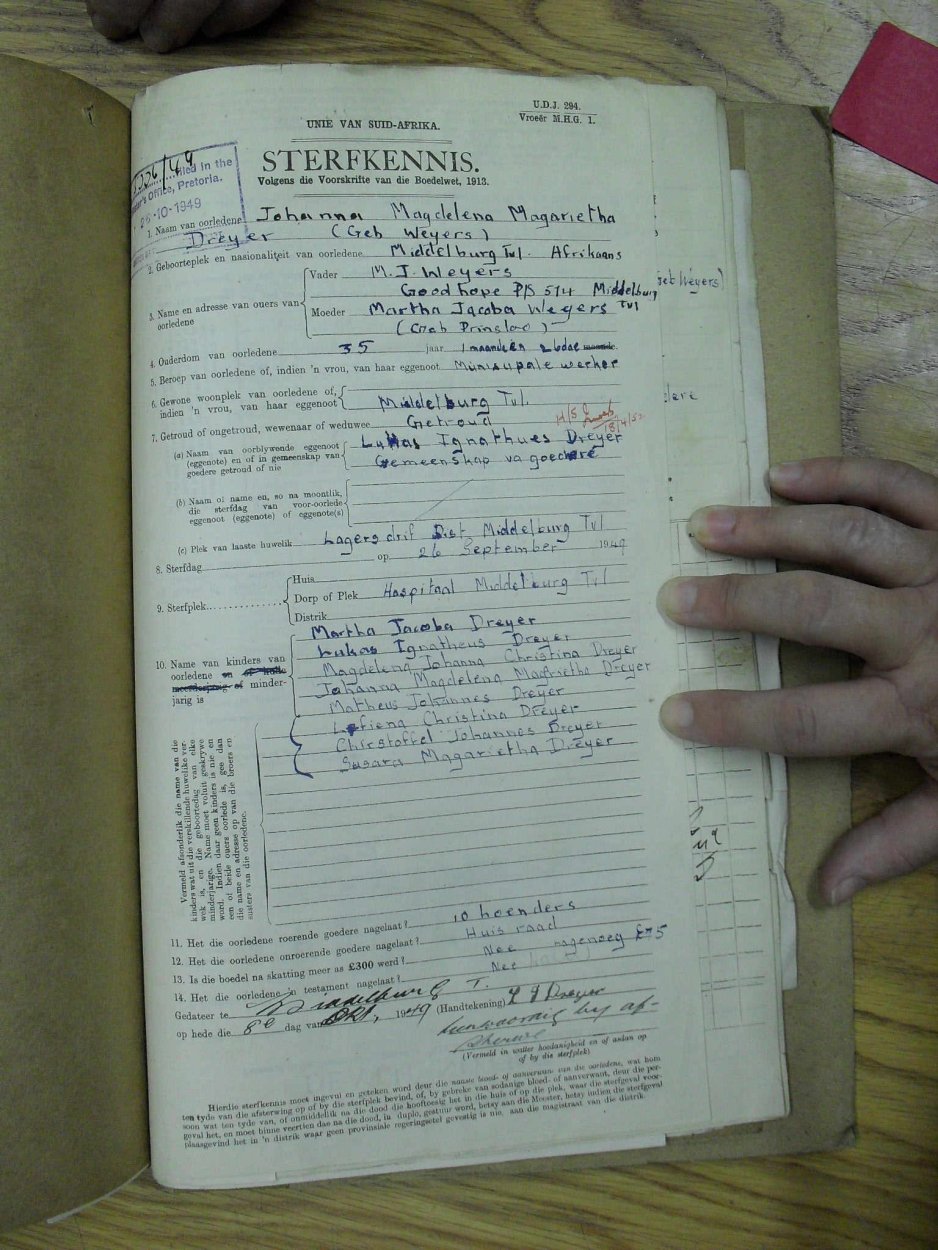 U.D.J. 294.
Vroeër M.H.G. 1.
UNIE VAN SUID-AFRIKA.
STERFKENNIS.
Volgens die Voorskrifte van die Boedelwet, 1913.
/49
filed in the
Office, Pretoria.
-10-1949
1. Naam van oorledene Johanna Magdelena Magarietha
Dreyer (Geb Weyers)
2. Geboorteplek en nasionaliteit van oorledene Middelburg Tvl. Afrikaans
3. Name en adresse van ouers van oorledene
Vader M. J. Weyers
Goodhope P/S 514 Middelburg Tvl
Moeder Martha Jacoba Weyers
(Geb Prinsloo)
4. Ouderdom van oorledene 35 jaar 1 maand en 26 dae maande.
5. Beroep van oorledene of, indien 'n vrou, van haar eggenoot Munisipale werker
6. Gewone woonplek van oorledene of, indien 'n vrou, van haar eggenoot Middelburg Tvl.
7. Getroud of ongetroud, wewenaar of weduwee Getroud
18/4/52
(a) Naam van oorblywende eggenoot (eggenote) en of in gemeenskap van goedere getroud of nie
Lukas Ignathues Dreyer
Gemeenskap va goedere
(b) Naam of name en, so na moontlik, die sterfdag van voor-oorlede eggenoot (eggenote) of eggenote(s)
(c) Plek van laaste huwelik Lagersdrif Dist Middelburg Tvl
8. Sterfdag op 26 September 1949
9. Sterfplek
Huis
Dorp of Plek Hospitaal Middelburg Tvl
Distrik
10. Name van kinders van oorledene en of hulle meerderjarig of minderjarig is
Martha Jacoba Dreyer
Lukas Ignatheus Dreyer
Magdelena Johanna Christina Dreyer
Johanna Magdelena Magrietha Dreyer
Matheus Johannes Dreyer
Christina Dreyer
Chirstoffel Johannes Dreyer
Susara Magarietha Dreyer
Vermeld afsonderlik die name van die
kinders wat uit die verskillende huwelike ver-
wek is, en die geboortedag van elke
minderjarige. Name moet voluit geskrywe
word. Indien daar geen kinders is nie en
een of beide ouers oorlede is, gee dan
die name en adresse op van die broers en
susters van die oorledene.
11. Het die oorledene roerende goedere nagelaat? 10 hoenders
12. Het die oorledene onroerende goedere nagelaat? Huis raad
13. Is die boedel na skatting meer as £300 werd? Nee nagenoeg £75
14. Het die oorledene 'n testament nagelaat? Nee
Gedateer te Middelburg T.
op hede die 8e dag van Okt, 1949 (Handtekening) L J Dreyer
teenwoordig by af-
sterwe
(Vermeld in watter hoedanigheid en of aldan op
of by die sterfplek)
Hierdie sterfkennis moet ingevul en geteken word deur die naaste bloed- of aanverwant van die oorledene, wat hom
ten tyde van die afsterwing op of by die sterfplek bevind, of, by gebreke van sodanige bloed- of aanverwant, deur die per-
soon wat ten tyde van, of onmiddellik na die dood die hooftoesig het in die huis of op die plek, waar die sterfgeval voor-
geval het, en moet binne veertien dae na die dood, in duplo, gestuur word, hetsy aan die Meester, hetsy indien die sterfgeval
plaasgevind het in 'n distrik waar geen provinsiale regeringsetel gevestig is nie, aan die magistraat van die distrik.
Geb Weyers)